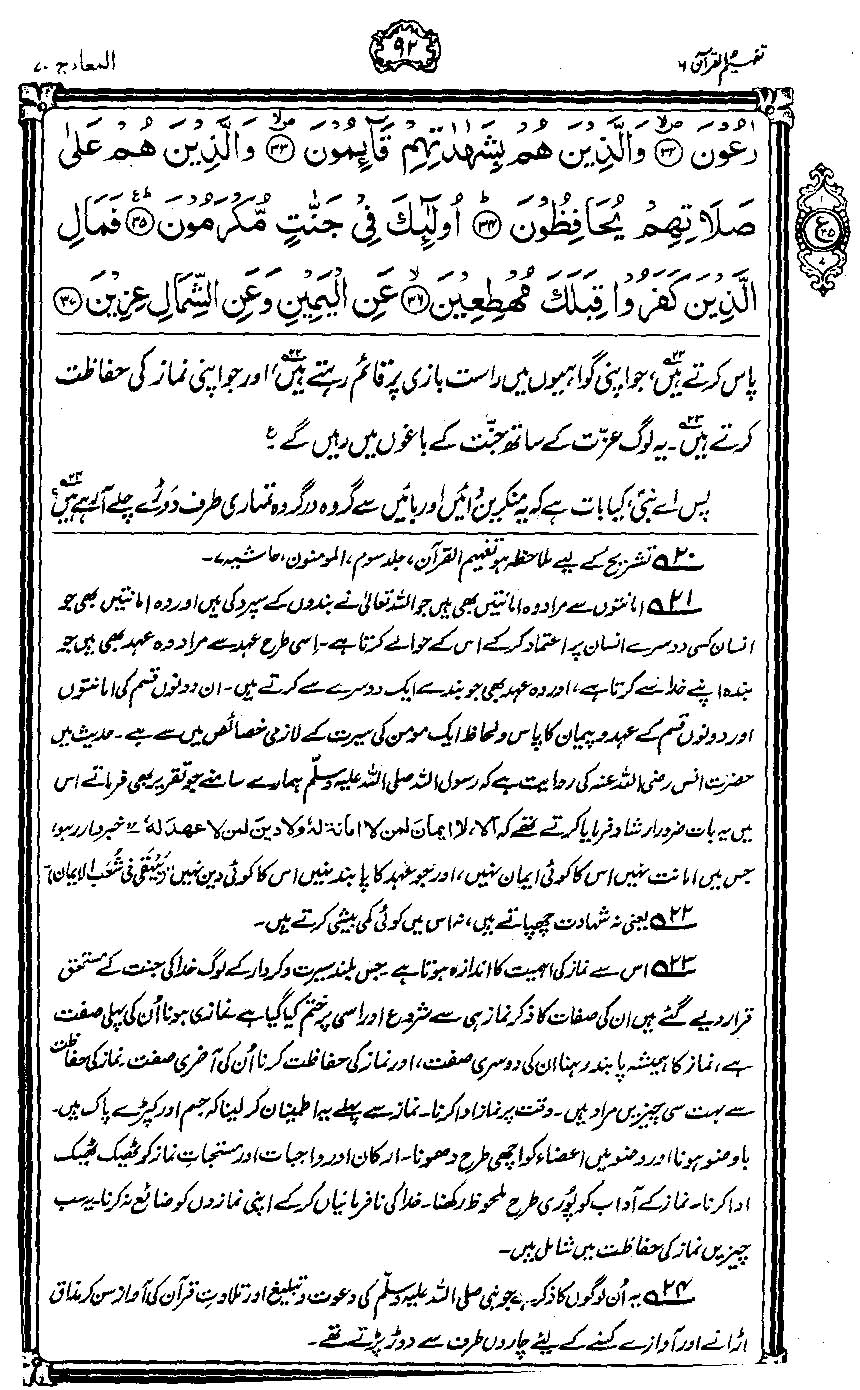 تفہیم القرآن ۶
۹۲
المعارج ۷۰
رٰعُوْنَ ﴿۳۲﴾ وَالَّذِيْنَ هُمْ بِشَهٰدٰتِهِمْ قَآئِمُوْنَ ﴿۳۳﴾ وَالَّذِيْنَ هُمْ عَلٰى
صَلَاتِهِمْ يُحَافِظُوْنَ ﴿۳۴﴾ اُولٰٓئِكَ فِيْ جَنّٰتٍ مُّكْرَمُوْنَ ﴿۳۵﴾ فَمَالِ
الَّذِيْنَ كَفَرُوْا قِبَلَكَ مُهْطِعِيْنَ ﴿۳۶﴾ عَنِ الْيَمِيْنِ وَعَنِ الشِّمَالِ عِزِيْنَ ﴿۳۷﴾
پاس کرتے ہیں، جو اپنی گواہیوں میں راست بازی پر قائم رہتے ہیں۲۲، اور جو اپنی نماز کی حفاظت
کرتے ہیں۲۳۔ یہ لوگ عزّت کے ساتھ جنّت کے باغوں میں رہیں گے ع
پس اے نبیؐ، کیا بات ہے کہ یہ منکرین دائیں اور بائیں سے گروہ در گروہ تمہاری طرف دَوڑے چلے آرہے ہیں۲۴؟
۲۰ تشریح کے لیے ملاحظہ ہو تفہیم القرآن، جلد سوم، المومنون، حاشیہ ۷۔
۲۱ امانتوں سے مراد وہ امانتیں بھی ہیں جو اللہ تعالیٰ نے بندوں کے سپرد کی ہیں اور وہ امانتیں بھی جو
انسان کسی دوسرے انسان پر اعتماد کر کے اس کے حوالے کرتا ہے۔ اسی طرح عہد سے مراد وہ عہد بھی ہیں جو
بندہ اپنے خدا سے کرتا ہے، اور وہ عہد بھی جو بندے ایک دوسرے سے کرتے ہیں۔ ان دونوں قسم کی امانتوں
اور دونوں قسم کے عہد و پیمان کا پاس و لحاظ ایک مومن کی سیرت کے لازمی خصائص میں سے ہے۔ حدیث میں
حضرت انس رضی اللہ عنہ کی روایت ہے کہ رسول اللہ صلی اللہ علیہ وسلّم ہمارے سامنے جو تقریر بھی فرماتے اس
میں یہ بات ضرور ارشاد فرمایا کرتے تھے کہ اَلا، لا ایمانَ لمن لا امانۃ لہٗ ولا دینَ لمن لا عھدَ لہٗ ”خبردار رہو،
جس میں امانت نہیں اس کا کوئی ایمان نہیں، اور جو عہد کا پابند نہیں اس کا کوئی دین نہیں“ (بَیْہَقی فی شُعَب الایمان)۔
۲۲ یعنی نہ شہادت چھپاتے ہیں، نہ اس میں کوئی کمی بیشی کرتے ہیں۔
۲۳ اس سے نماز کی اہمیت کا اندازہ ہوتا ہے جس بلند سیرت و کردار کے لوگ خدا کی جنت کے مستحق
قرار دیے گئے ہیں ان کی صفات کا ذکر نماز ہی سے شروع اور اسی پر ختم کیا گیا ہے۔ نمازی ہونا اُن کی پہلی صفت
ہے، نماز کا ہمیشہ پابند رہنا ان کی دوسری صفت، اور نماز کی حفاظت کرنا اُن کی آخری صفت۔ نماز کی حفاظت
سے بہت سی چیزیں مراد ہیں۔ وقت پر نماز ادا کرنا۔ نماز سے پہلے یہ اطمینان کر لینا کہ جسم اور کپڑے پاک ہیں۔
باوضو ہونا اور وضو میں اعضاء کو اچھی طرح دھونا۔ ارکان اور واجبات اور مستحبات نماز کو ٹھیک ٹھیک
ادا کرنا۔ نماز کے آداب کو پُوری طرح ملحوظ رکھنا۔ خدا کی نافرمانیاں کر کے اپنی نمازوں کو ضائع نہ کرنا۔ یہ سب
چیزیں نماز کی حفاظت میں شامل ہیں۔
۲۴ یہ اُن لوگوں کا ذکر ہے جو نبی صلی اللہ علیہ وسلّم کی دعوت و تبلیغ اور تلاوتِ قرآن کی آواز سن کر مذاق
اڑانے اور آوازے کسنے کے لیئے چاروں طرف سے دوڑ پڑتے تھے۔